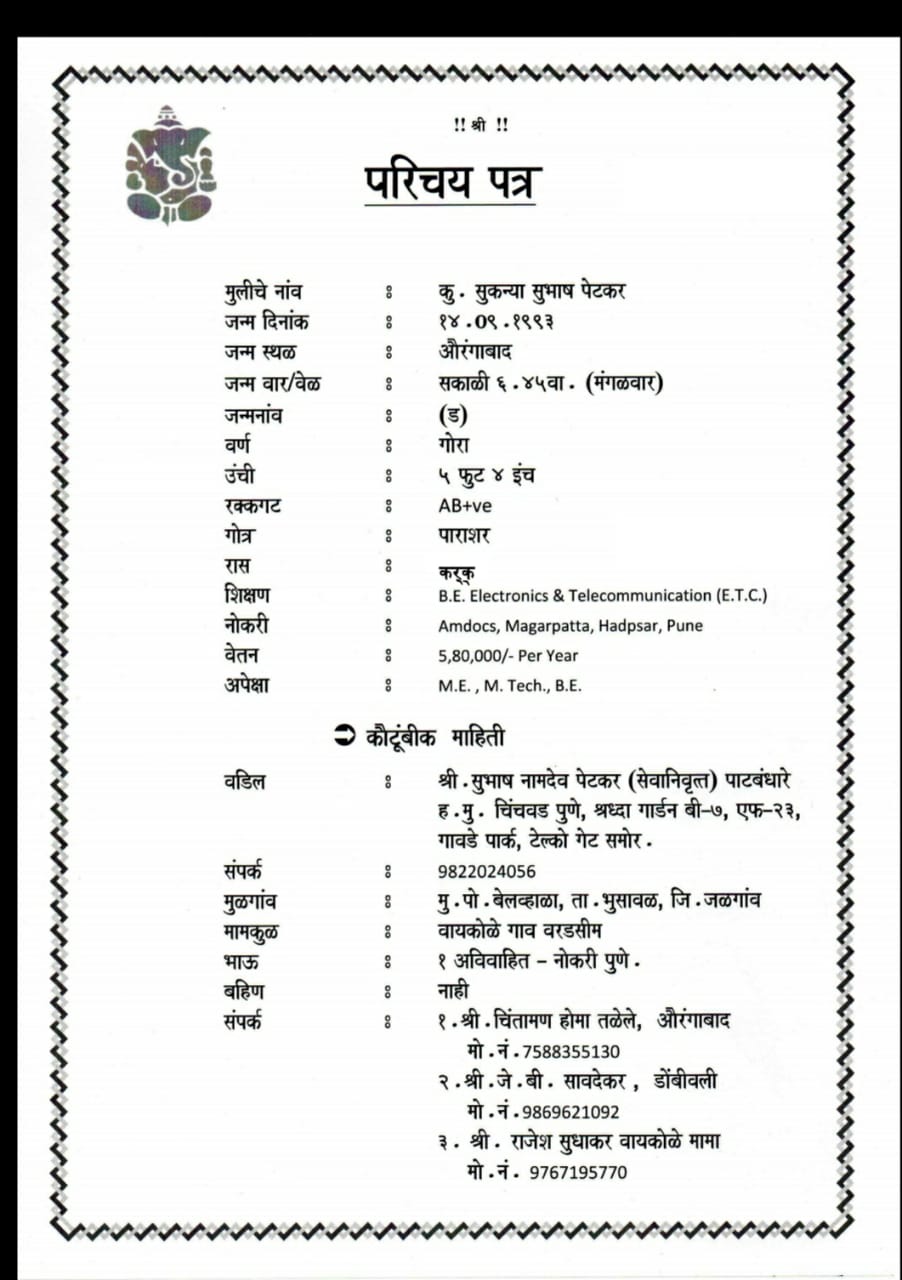 !! श्री !!
परिचय पत्र
मुलीचे नांव : कु. सुकन्या सुभाष पेटकर
जन्म दिनांक : १४.०९.१९९३
जन्म स्थळ : औरंगाबाद
जन्म वार/वेळ : सकाळी ६.४५वा. (मंगळवार)
जन्मनांव : (ड)
वर्ण : गोरा
उंची : ५ फुट ४ इंच
रक्कगट : AB+ve
गोत्र : पाराशर
रास : कर्क्
शिक्षण : B.E. Electronics & Telecommunication (E.T.C.)
नोकरी : Amdocs, Magarpatta, Hadpsar, Pune
वेतन : 5,80,000/- Per Year
अपेक्षा : M.E. , M. Tech., B.E.
➲ कौटूंबीक माहिती
वडिल : श्री.सुभाष नामदेव पेटकर (सेवानिवृत्त) पाटबंधारे
ह.मु. चिंचवड पुणे, श्रध्दा गार्डन बी-७, एफ-२३,
गावडे पार्क, टेल्को गेट समोर.
संपर्क : 9822024056
मुळगांव : मु.पो.बेलव्हाळा, ता.भुसावळ, जि.जळगांव
मामकुळ : वायकोळे गाव वरडसीम
भाऊ : १ अविवाहित – नोकरी पुणे.
बहिण : नाही
संपर्क : १.श्री.चिंतामण होमा तळेले, औरंगाबाद
मो.नं.7588355130
२.श्री.जे.बी. सावदेकर , डोंबीवली
मो.नं.9869621092
३. श्री. राजेश सुधाकर वायकोळे मामा
मो.नं. 9767195770